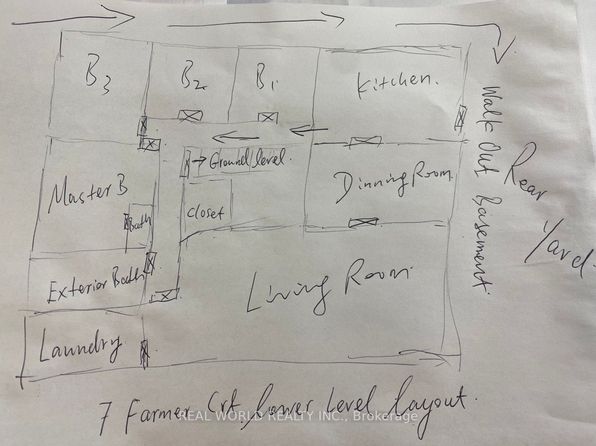 B3
B2
B1
Kitchen.
Walk Out Basement.
Rear Yard.
→ Ground level.
Master B
Bath
closet
Dinning Room
Exterior Bath
Living Room
Laundry
7 Farmer Crt Lower Level Layout.
REAL WORLD REALTY INC., Brokerage